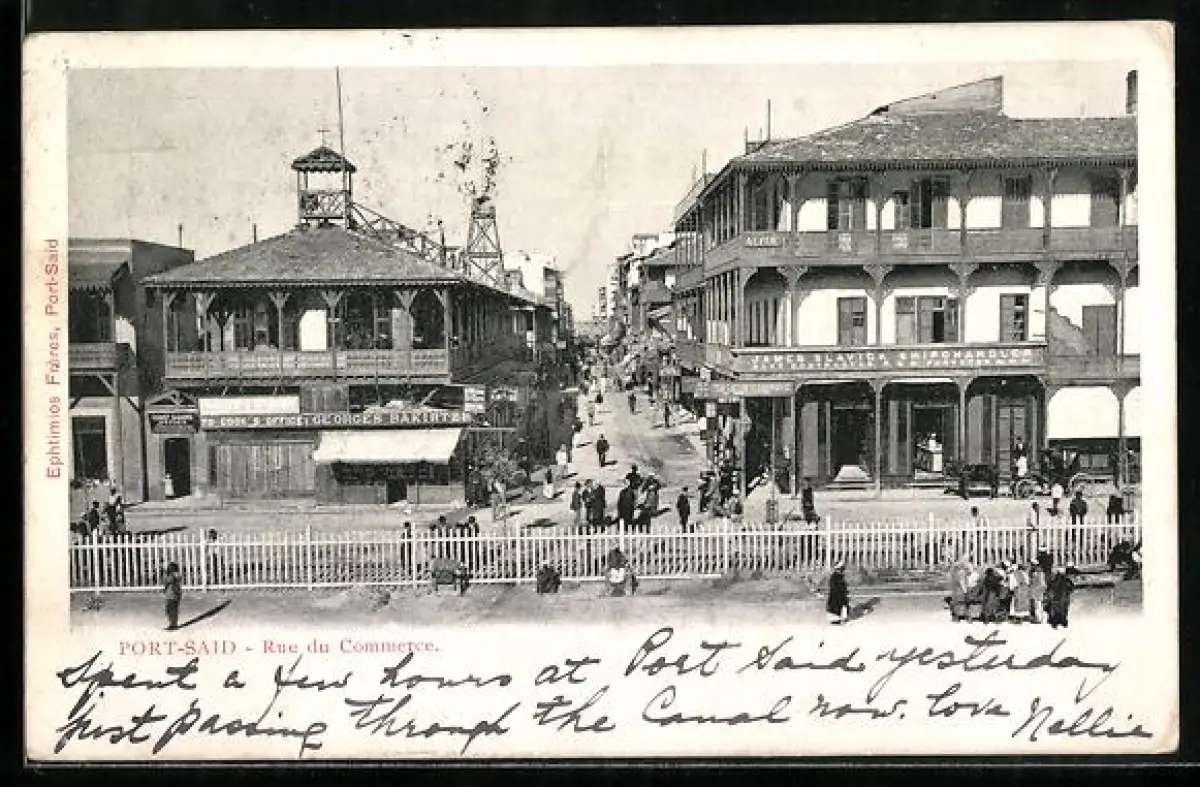 Ephtimios Frères, Port-Said
GEORGES BAKIRTZE
COOK'S OFFICE
JAMES SLAVICK SHIPCHANDLER
PORT-SAID - Rue du Commerce.
Spent a few hours at Port Said yesterday
just passing through the Canal now. Love Nellie